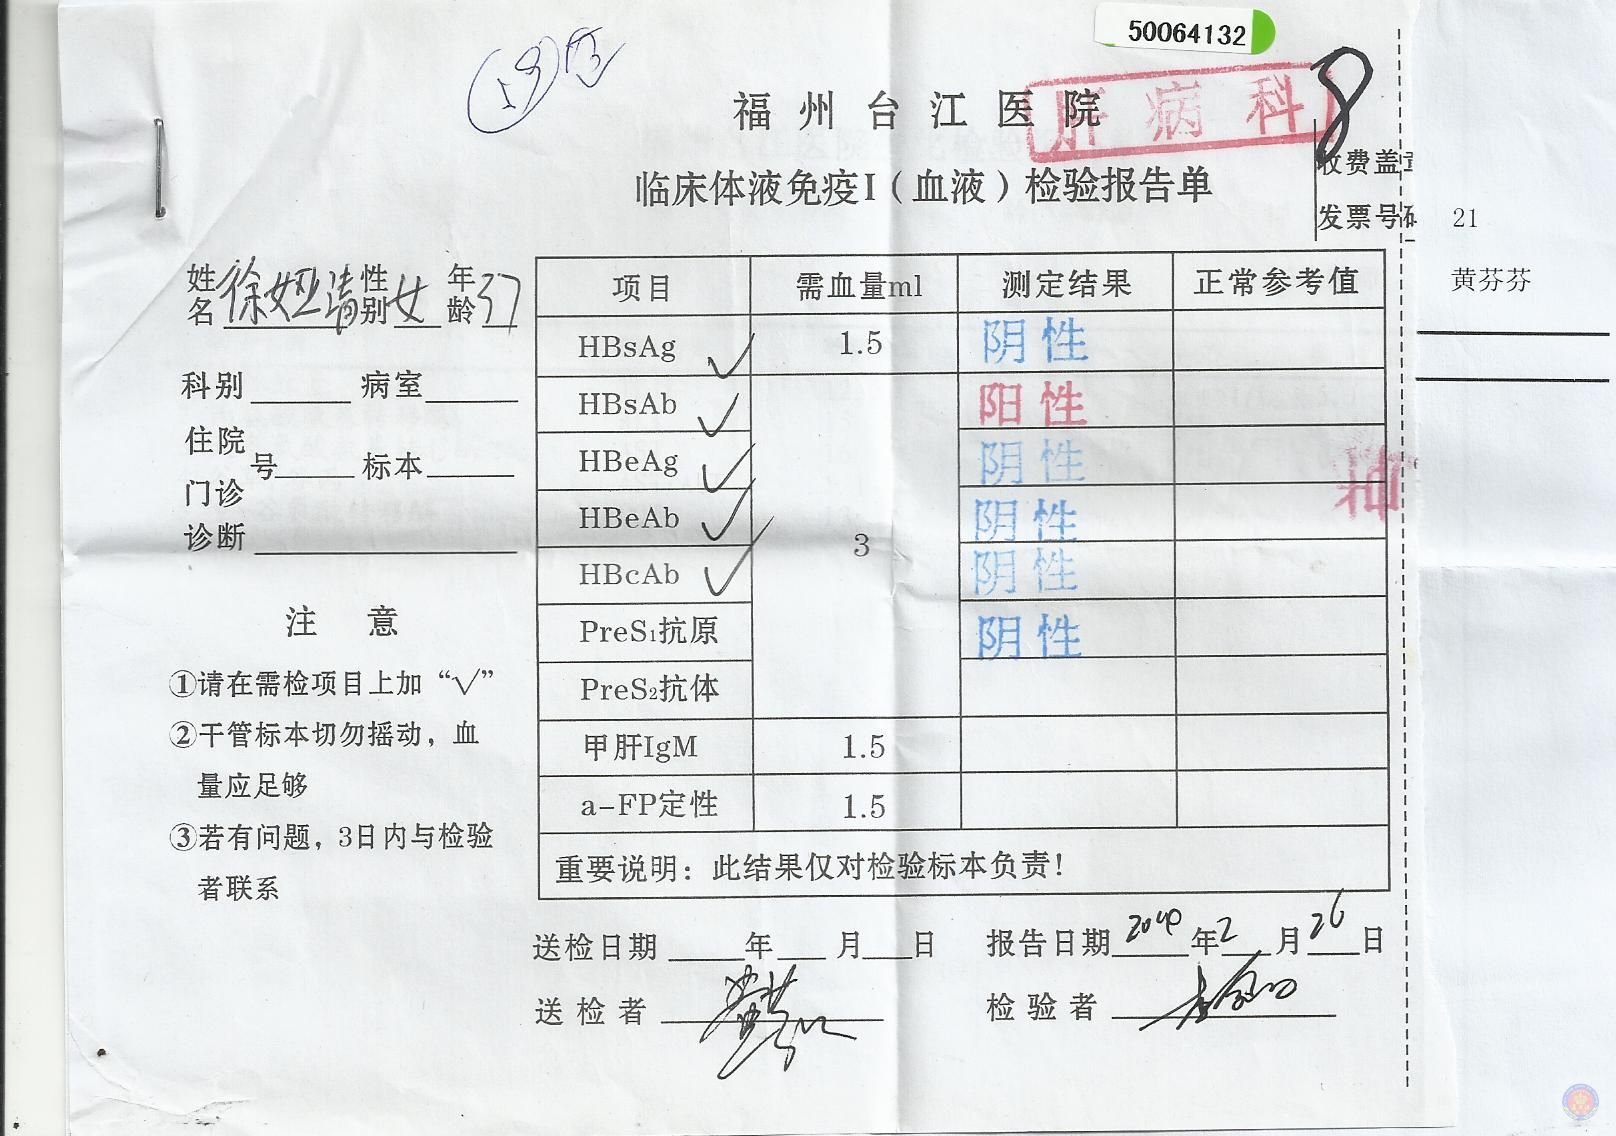 50064132
福州台江医院
肝病科
8
临床体液免疫I（血液）检验报告单
收费盖章
发票号码
21
黄芬芬
姓名 徐娅清 性别 女 年龄 37
科别 病室
住院
门诊 号 标本
诊断
注 意
①请在需检项目上加“√”
②干管标本切勿摇动，血
量应足够
③若有问题，3日内与检验
者联系
项目 需血量ml 测定结果 正常参考值
HBsAg √ 1.5 阴性
HBsAb √ 阳性
HBeAg √ 阴性
HBeAb √ 阴性
3
HBcAb √ 阴性
PreS₁抗原 阴性
PreS₂抗体
甲肝IgM 1.5
a-FP定性 1.5
重要说明：此结果仅对检验标本负责！
送检日期 年 月 日 报告日期 年 2 月 26 日
送检者 检验者